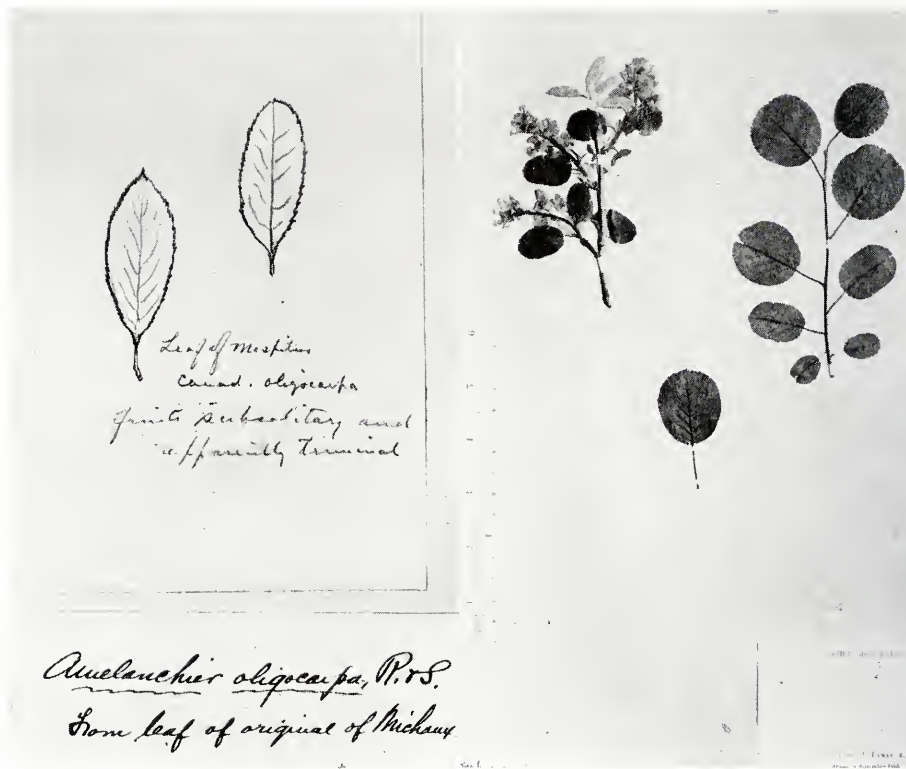 Leaf of Mespilus
canad. oligocarpa
fruits subsolitary and
apparently terminal
Amelanchier oligocarpa, R. & S.
From leaf of original of Michaux